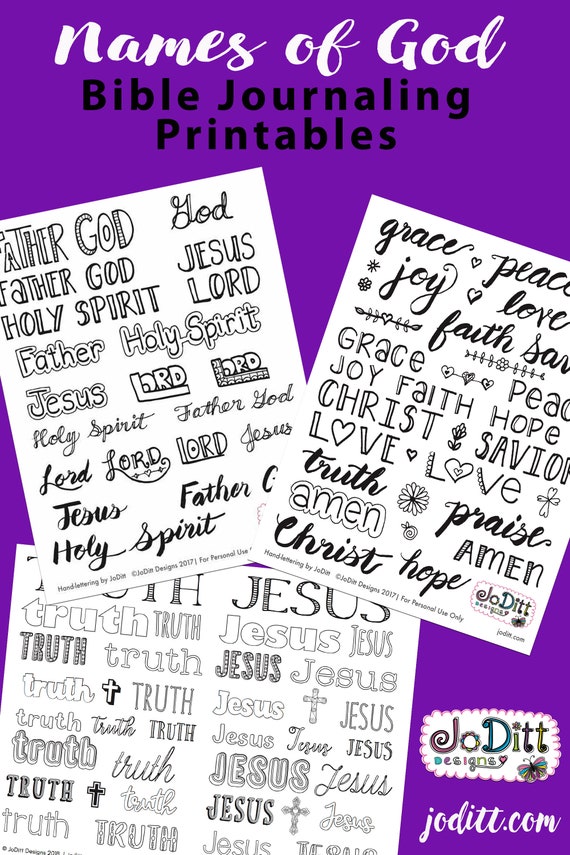 Names of God
Bible Journaling
Printables
FATHER GOD God
FATHER GOD JESUS
HOLY SPIRIT LORD
Father Holy-Spirit
Jesus LORD LORD
Holy Spirit Father God
Lord LORD LORD Jesus
Jesus Father
Holy Spirit
Hand-lettering by JoDitt ©JoDitt Designs 2017 | For Personal Use Only
grace peace
joy love
faith
GRACE
JOY FAITH HOPE
CHRIST SAVIOR
LOVE LOVE
truth
amen praise
Christ hope AMEN
Hand-lettering by JoDitt ©JoDitt Designs 2017 | For Personal Use Only
JoDitt
DESIGNS
joditt.com
TRUTH JESUS
truth TRUTH Jesus JESUS
TRUTH truth JESUS Jesus
truth TRUTH Jesus JESUS
truth truth TRUTH Jesus Jesus JESUS
truth truth JESUS Jesus
TRUTH TRUTH JESUS JESUS
truth TRUTH Jesus JESUS
JoDitt
Designs
joditt.com